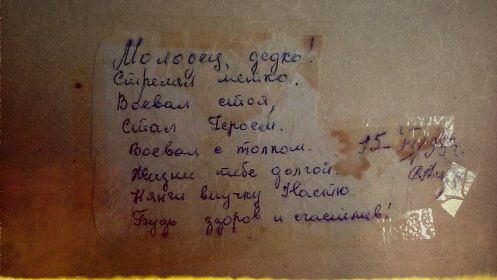 Молодец, дедко!
Стрелял метко.
Воевал стоя,
Стал Героем.
Воевал с толком.
Жизни тебе долгой.
Няньчи внучку Настю.
Будь здоров и счастлив!